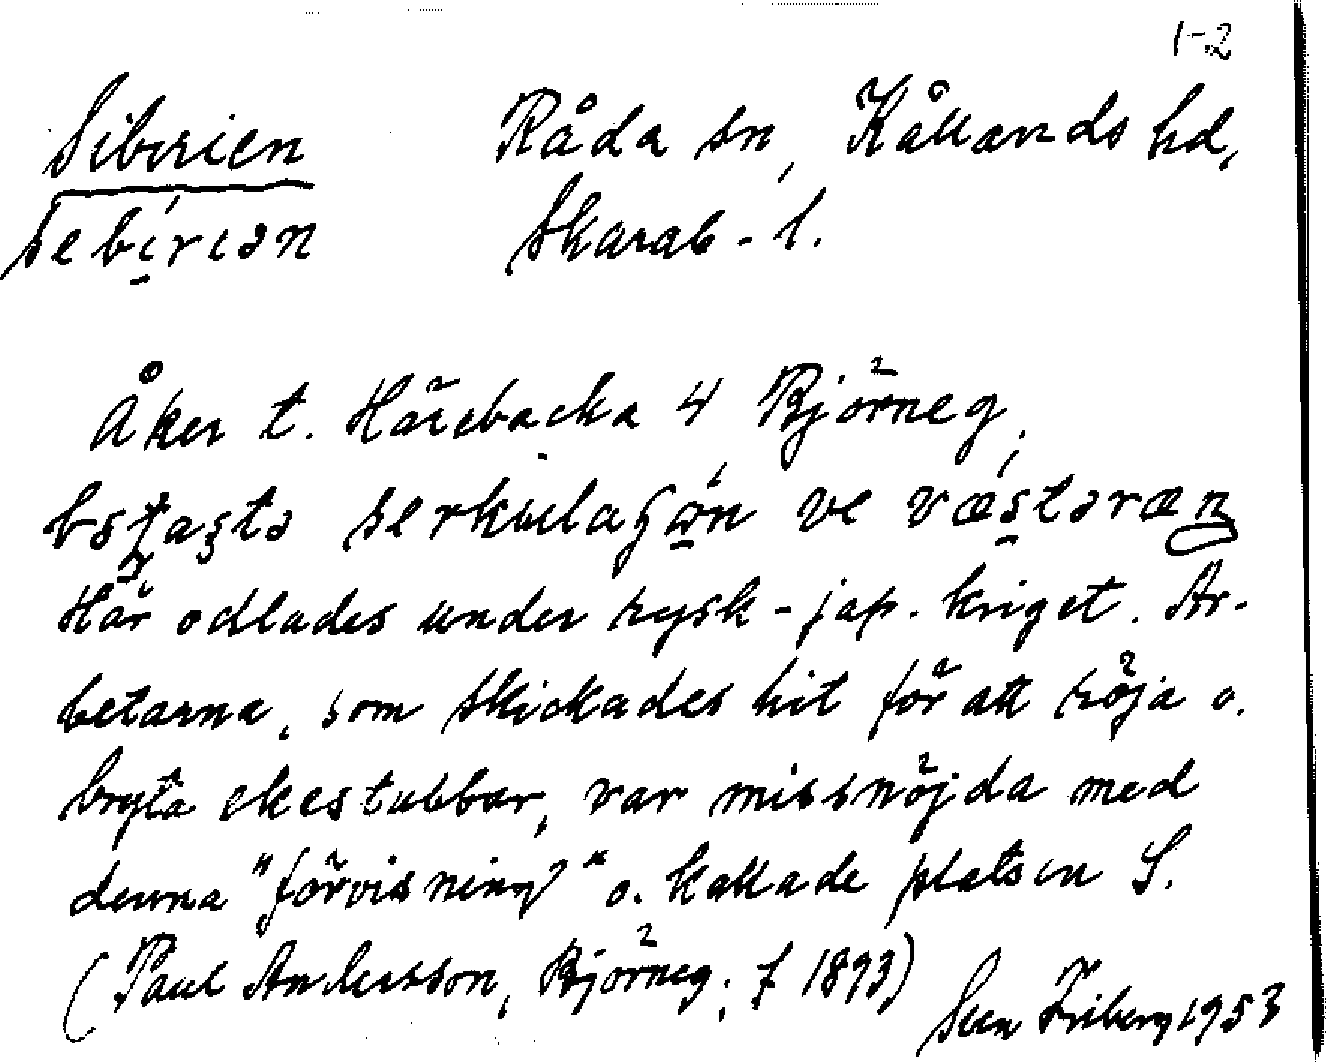 1-2
Siberien Råda sn, Kållands hd,
sebírıən Skarab.- l.
Åker t. Härebacka 4 Björneg,
serkulagón ve væstəræn
Här odlades under rysk-jap. kriget. Ar-
betarna, som skickades hit för att röja o.
bryta ekestubbar, var missnöjda med
denna "förvisning" o. kallade platsen S.
(Paul Andersson, Björneg, f 1893) Sven Friberg 1953